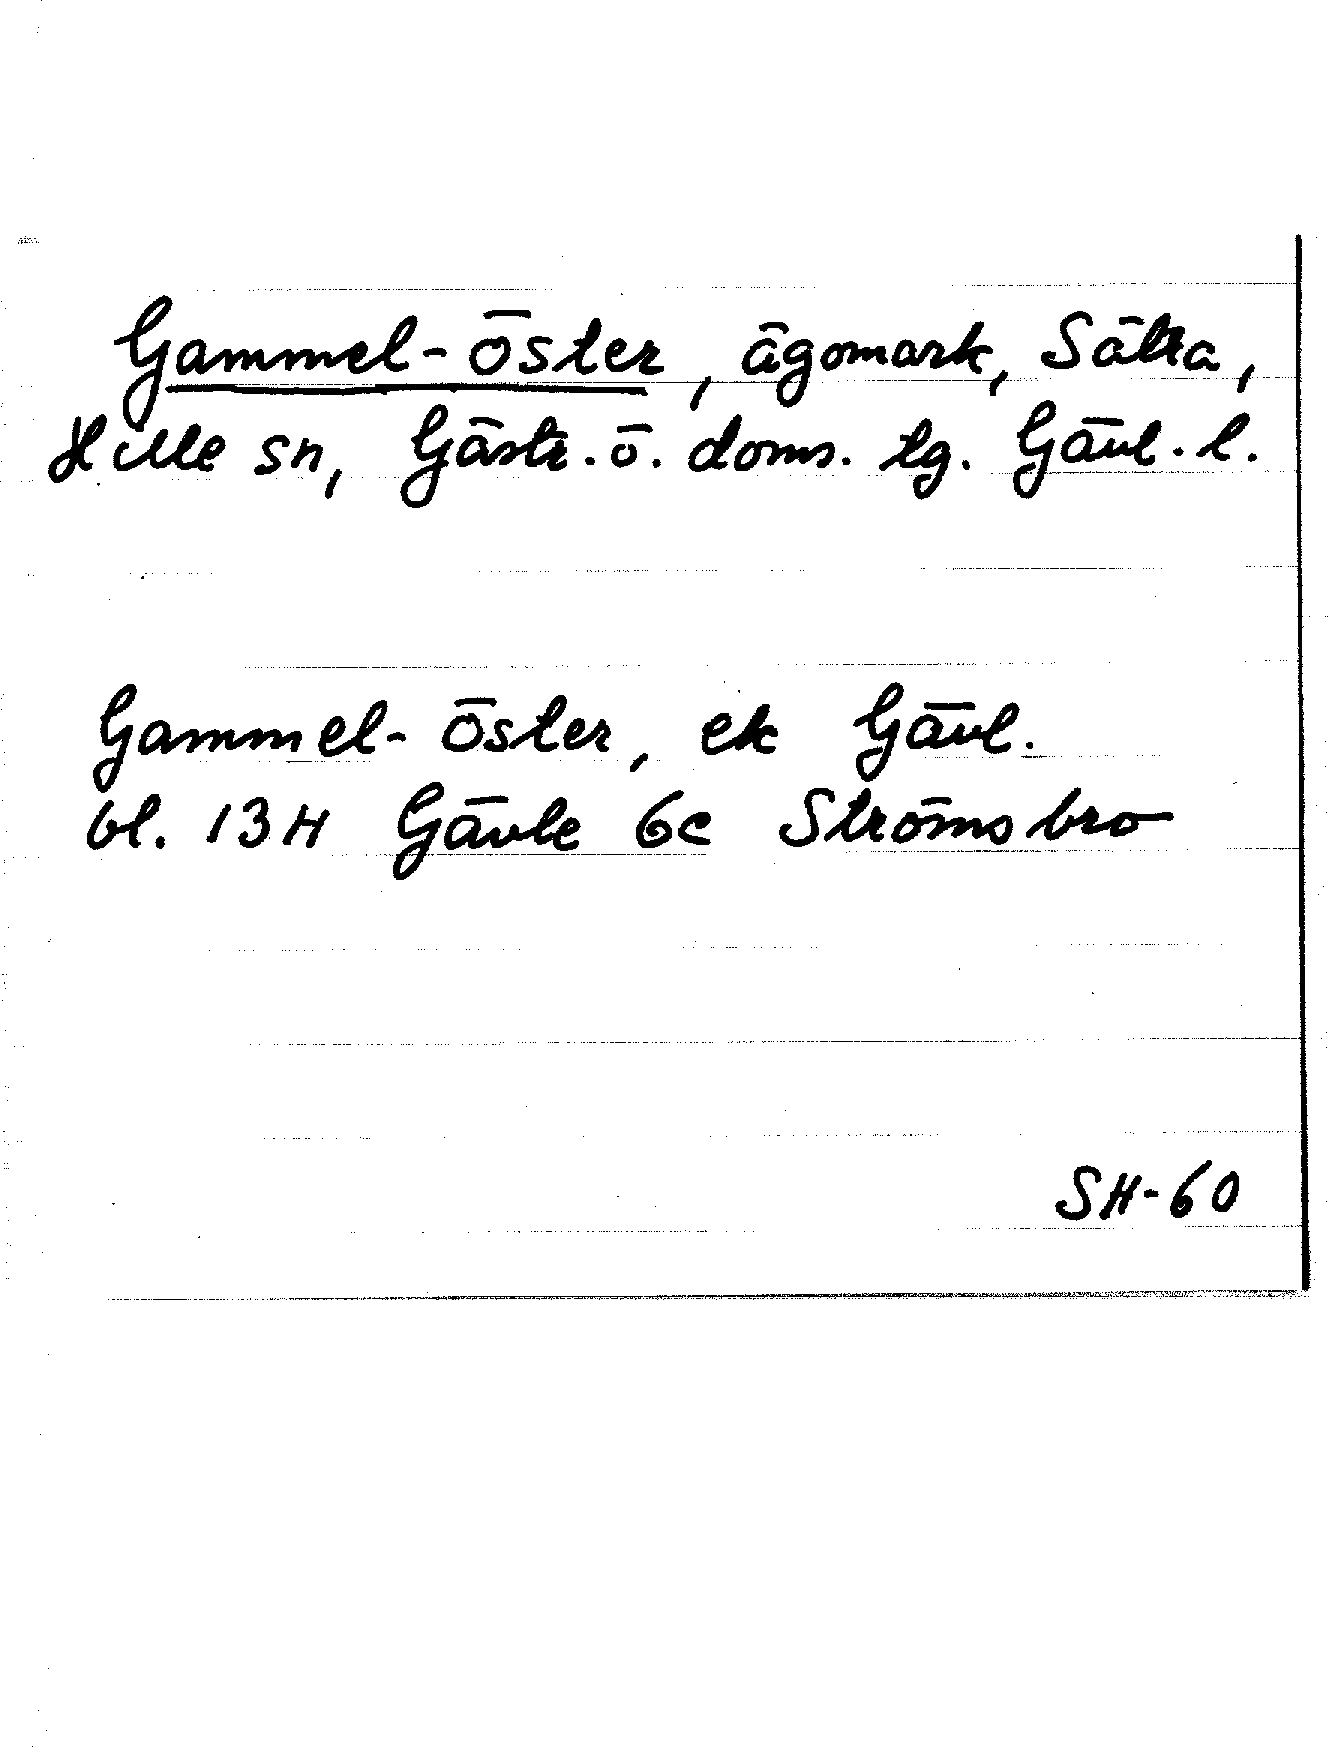 Gammel-öster, ägomark, Sätra,
Hille sn, Gästr. ö. doms. tg. Gävl. l.
Gammel-öster, ek Gävl.
bl. 13H Gävle 6c Strömsbro
SH-60